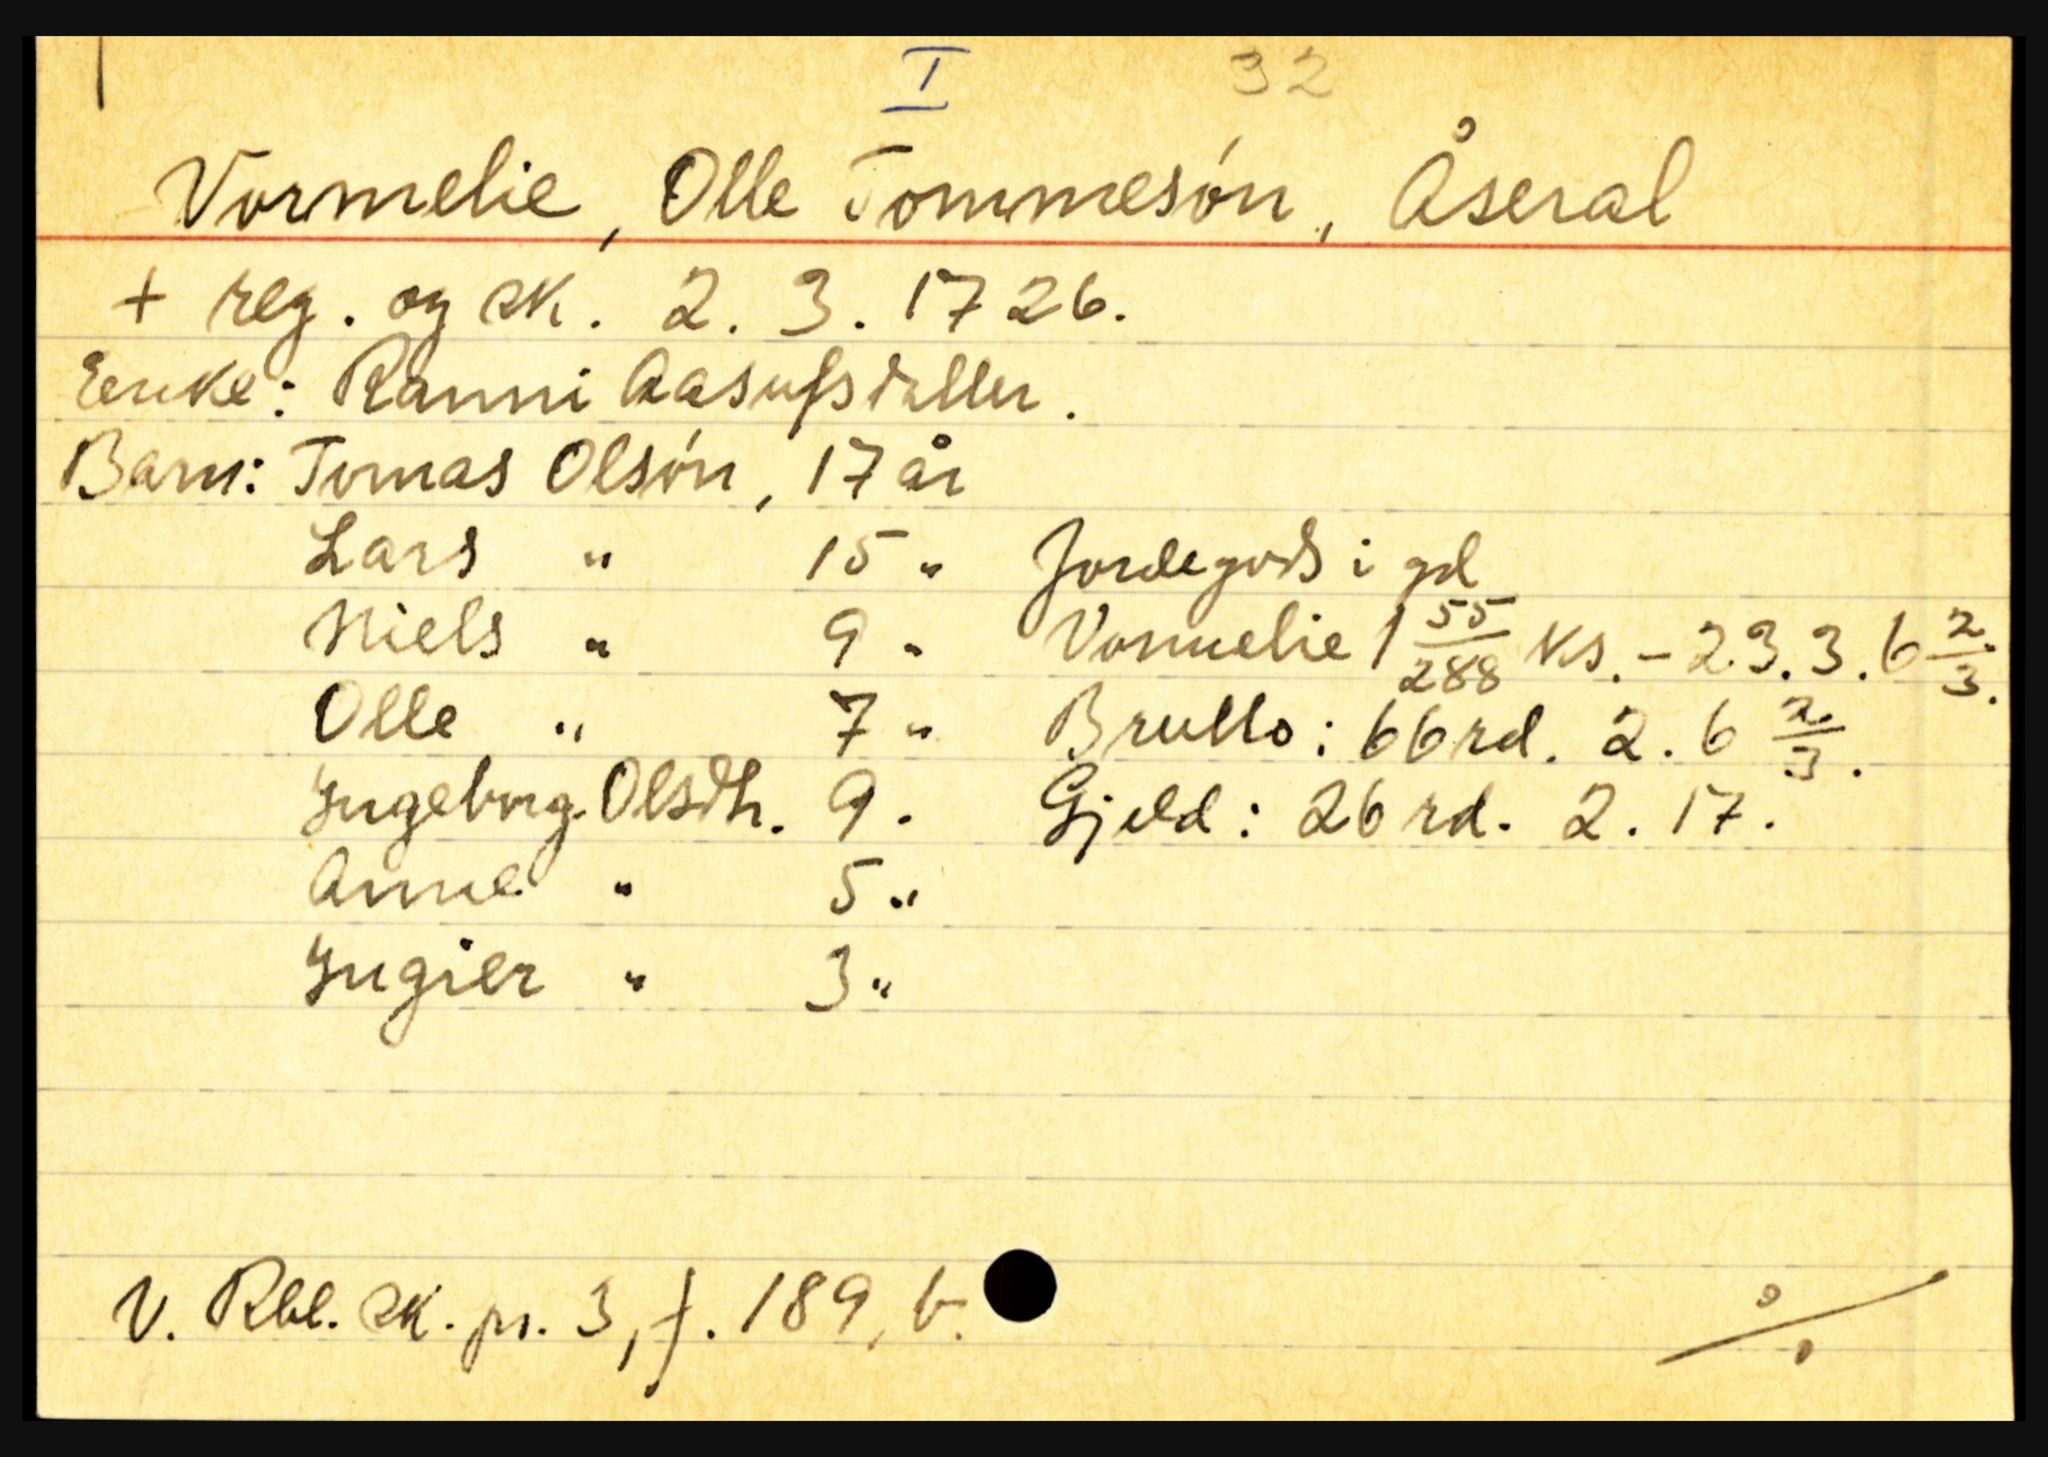 I 32
Vormelie, Olle Tommesón, Åseral
+ reg. og sk. 2. 3. 1726.
Enke: Ranni Aasufsdatter.
Barn: Tomas Olsón, 17 år
Lars " 15 " Jordegods i gd
Niels " 9 " Vormelie 1 55/288 ks. - 23.3.6 2/3.
Olle " 7 " Brutto: 66 rd. 2. 6 2/3.
Ingeborg Olsdtr. 9. Gjeld: 26 rd. 2. 17.
Anne " 5 "
Ingier " 3 "
V. Rbl. sk. pr. 3, f. 189, b. %